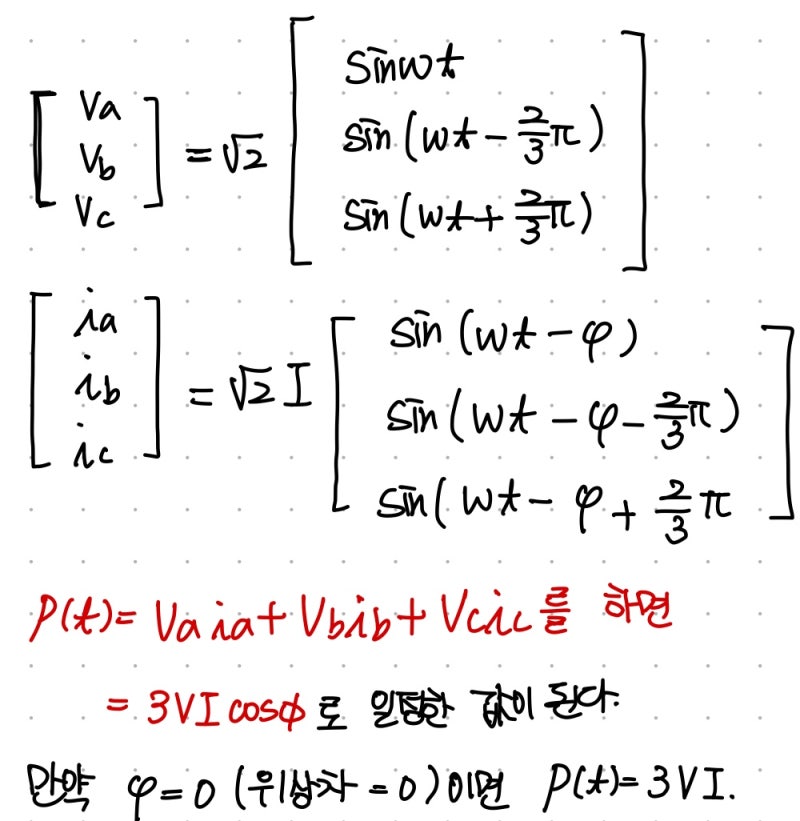 [ Va Vb Vc ] = √2 [ sinωt sin(ωt - 2/3 π) sin(ωt + 2/3 π) ]
[ ia ib ic ] = √2 I [ sin(ωt - φ) sin(ωt - φ - 2/3 π) sin(ωt - φ + 2/3 π ]
P(t) = Va ia + Vb ib + Vc ic를 하면
= 3VI cosϕ 로 일정한 값이 된다.
만약 φ = 0 (위상차 = 0) 이면 P(t) = 3VI.